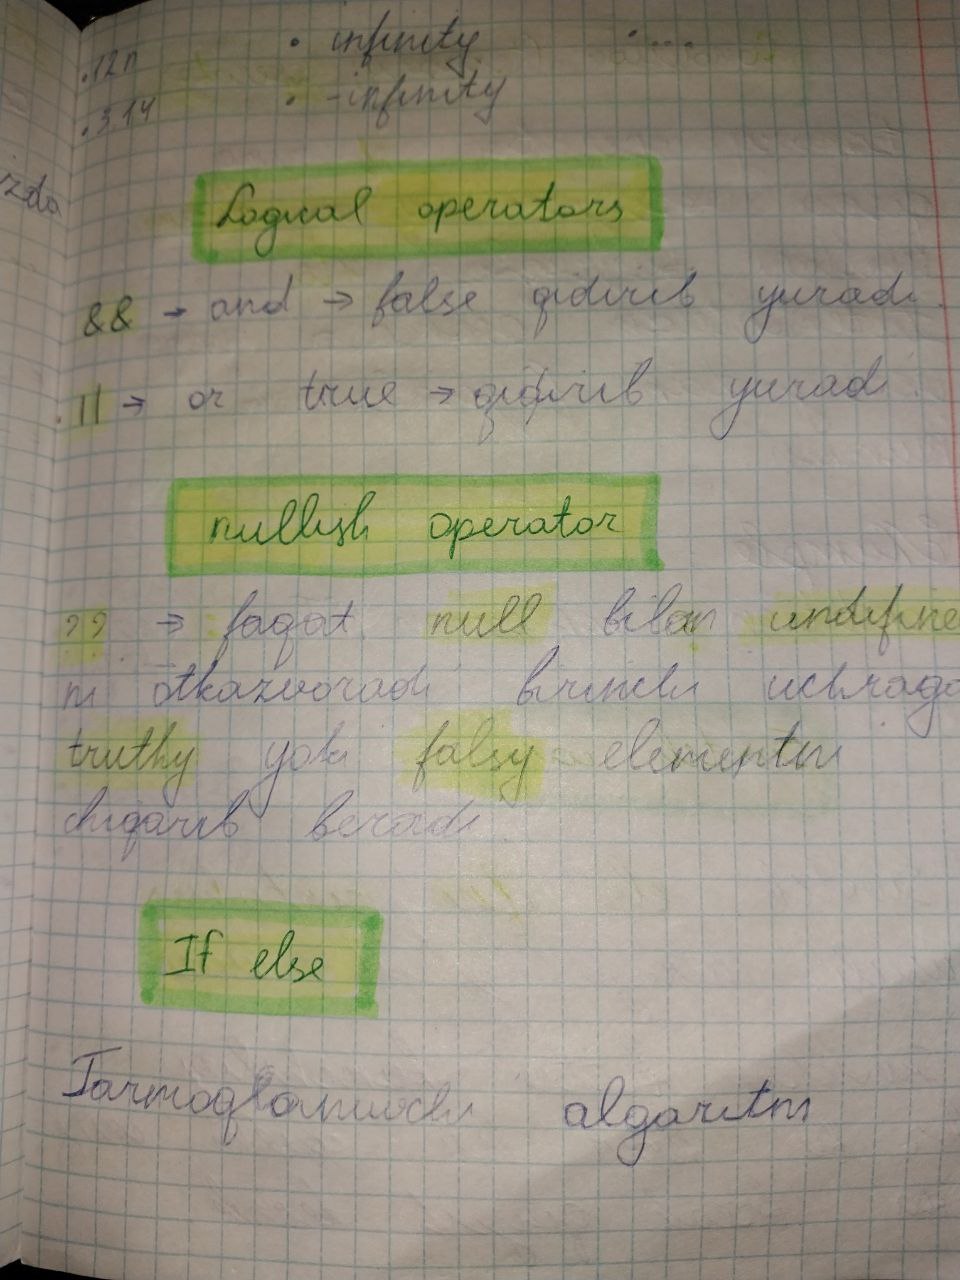 .12n • infinity • ...
.3.14 • -infinity
Logical operators
&& → and → false qidirib yuradi.
. || → or true → qidirib yuradi.
nullish operator
?? → faqat null bilan undifine
ni otkazvoradi birinchi uchraga
truthy yoki falsy elementni
chiqarib beradi.
If else
Tarmoqlanuvchi algaritm